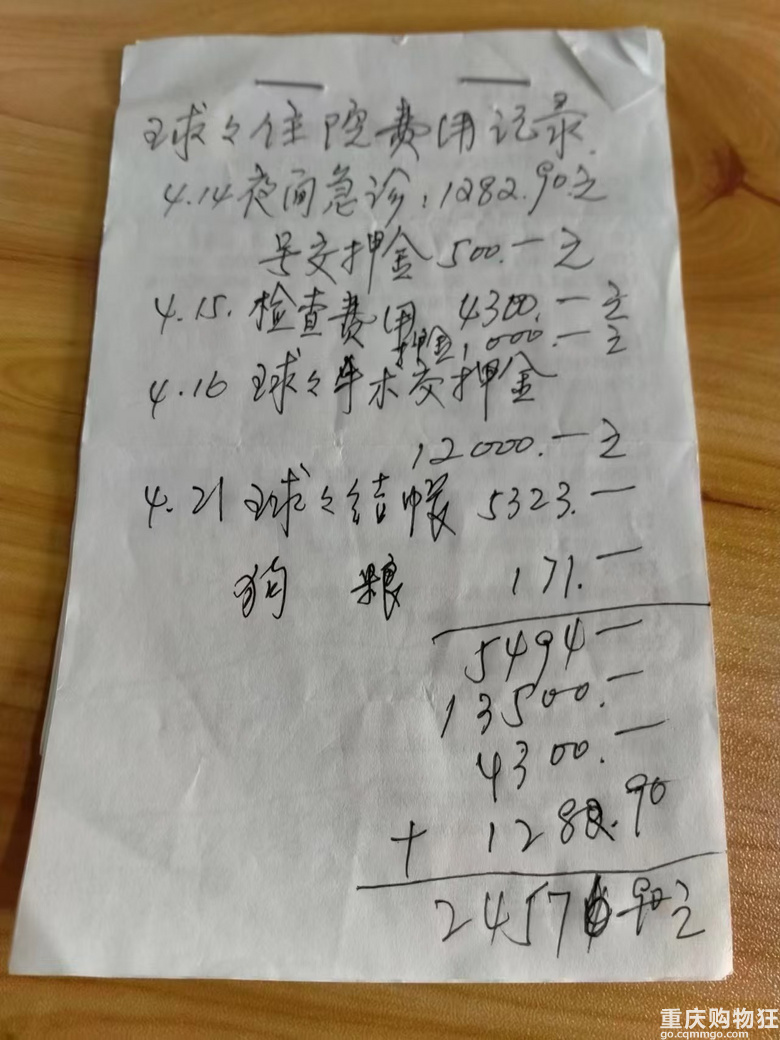 球々住院费用记录.
4.14夜间急诊:1282.90元
另交押金500.一元
4.15.检查费用 4300.一元
押金1,000.一元
4.16 球々手术交押金
12000.一元
4.21 球々结帐 5323.一
狗 粮 171.一
5494一
13500.一
4300.一
+ 1282.90
24576.90元
重庆购物狂
go.cqmmgo.com